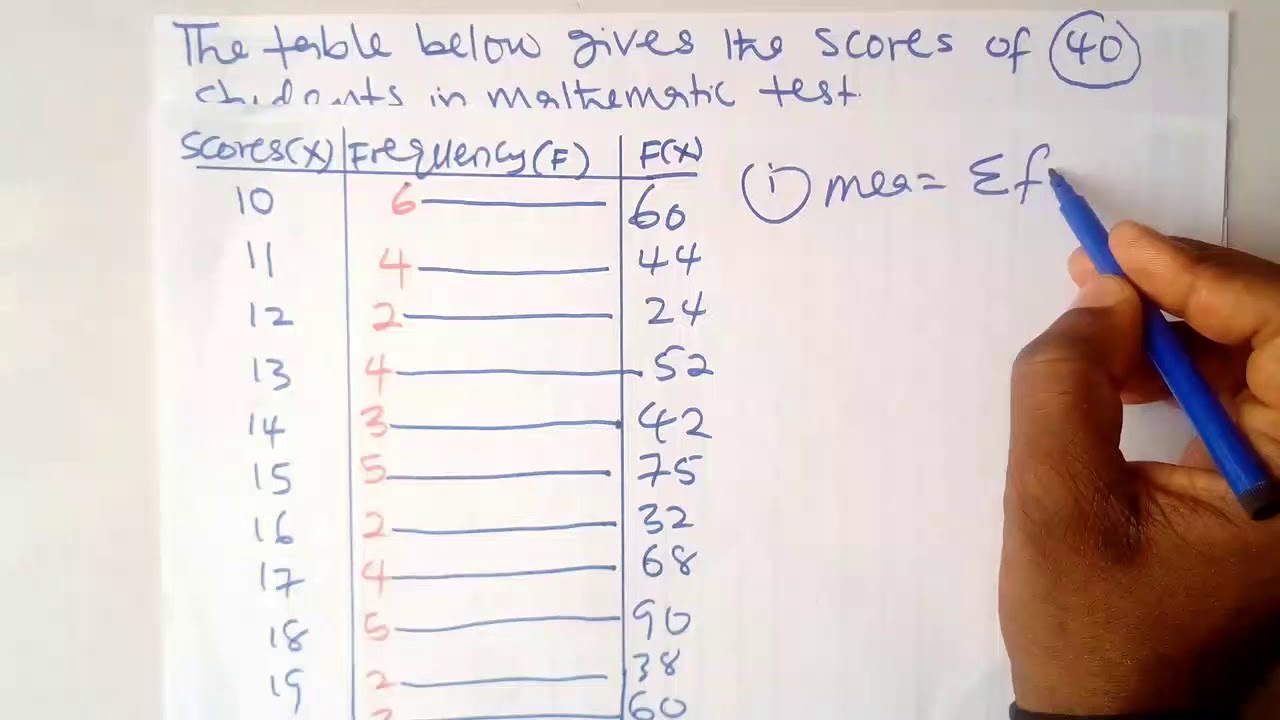 The table below gives the scores of 40
in mathematic test.
Scores(X) Frequency(F) F(X)
10 6 60
11 4 44
12 2 24
13 4 52
14 3 42
15 5 75
16 2 32
17 4 68
18 5 90
19 2 38
60
(i) mea= Σf